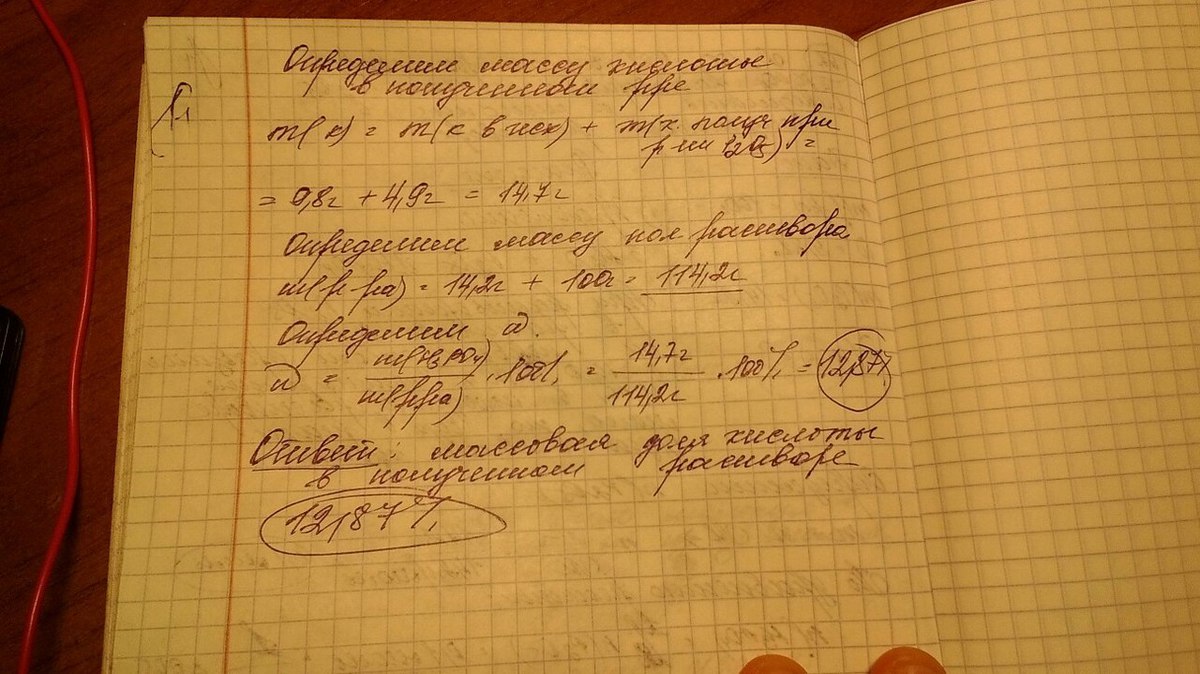 Определим массу кислоты
в полученном р-ре
m(к) = m(к в исх) + m(к. получ при
р-ции P2O5) =
= 9,8г + 4,9г = 14,7г
Определим массу пол раствора
m(р-ра) = 14,2г + 100г = 114,2г
Определим ω.
ω = m(H3PO4) / m(р-ра) · 100% = 14,7г / 114,2г · 100% = 12,87%
Ответ: массовая доля кислоты
в полученном растворе
12,87%